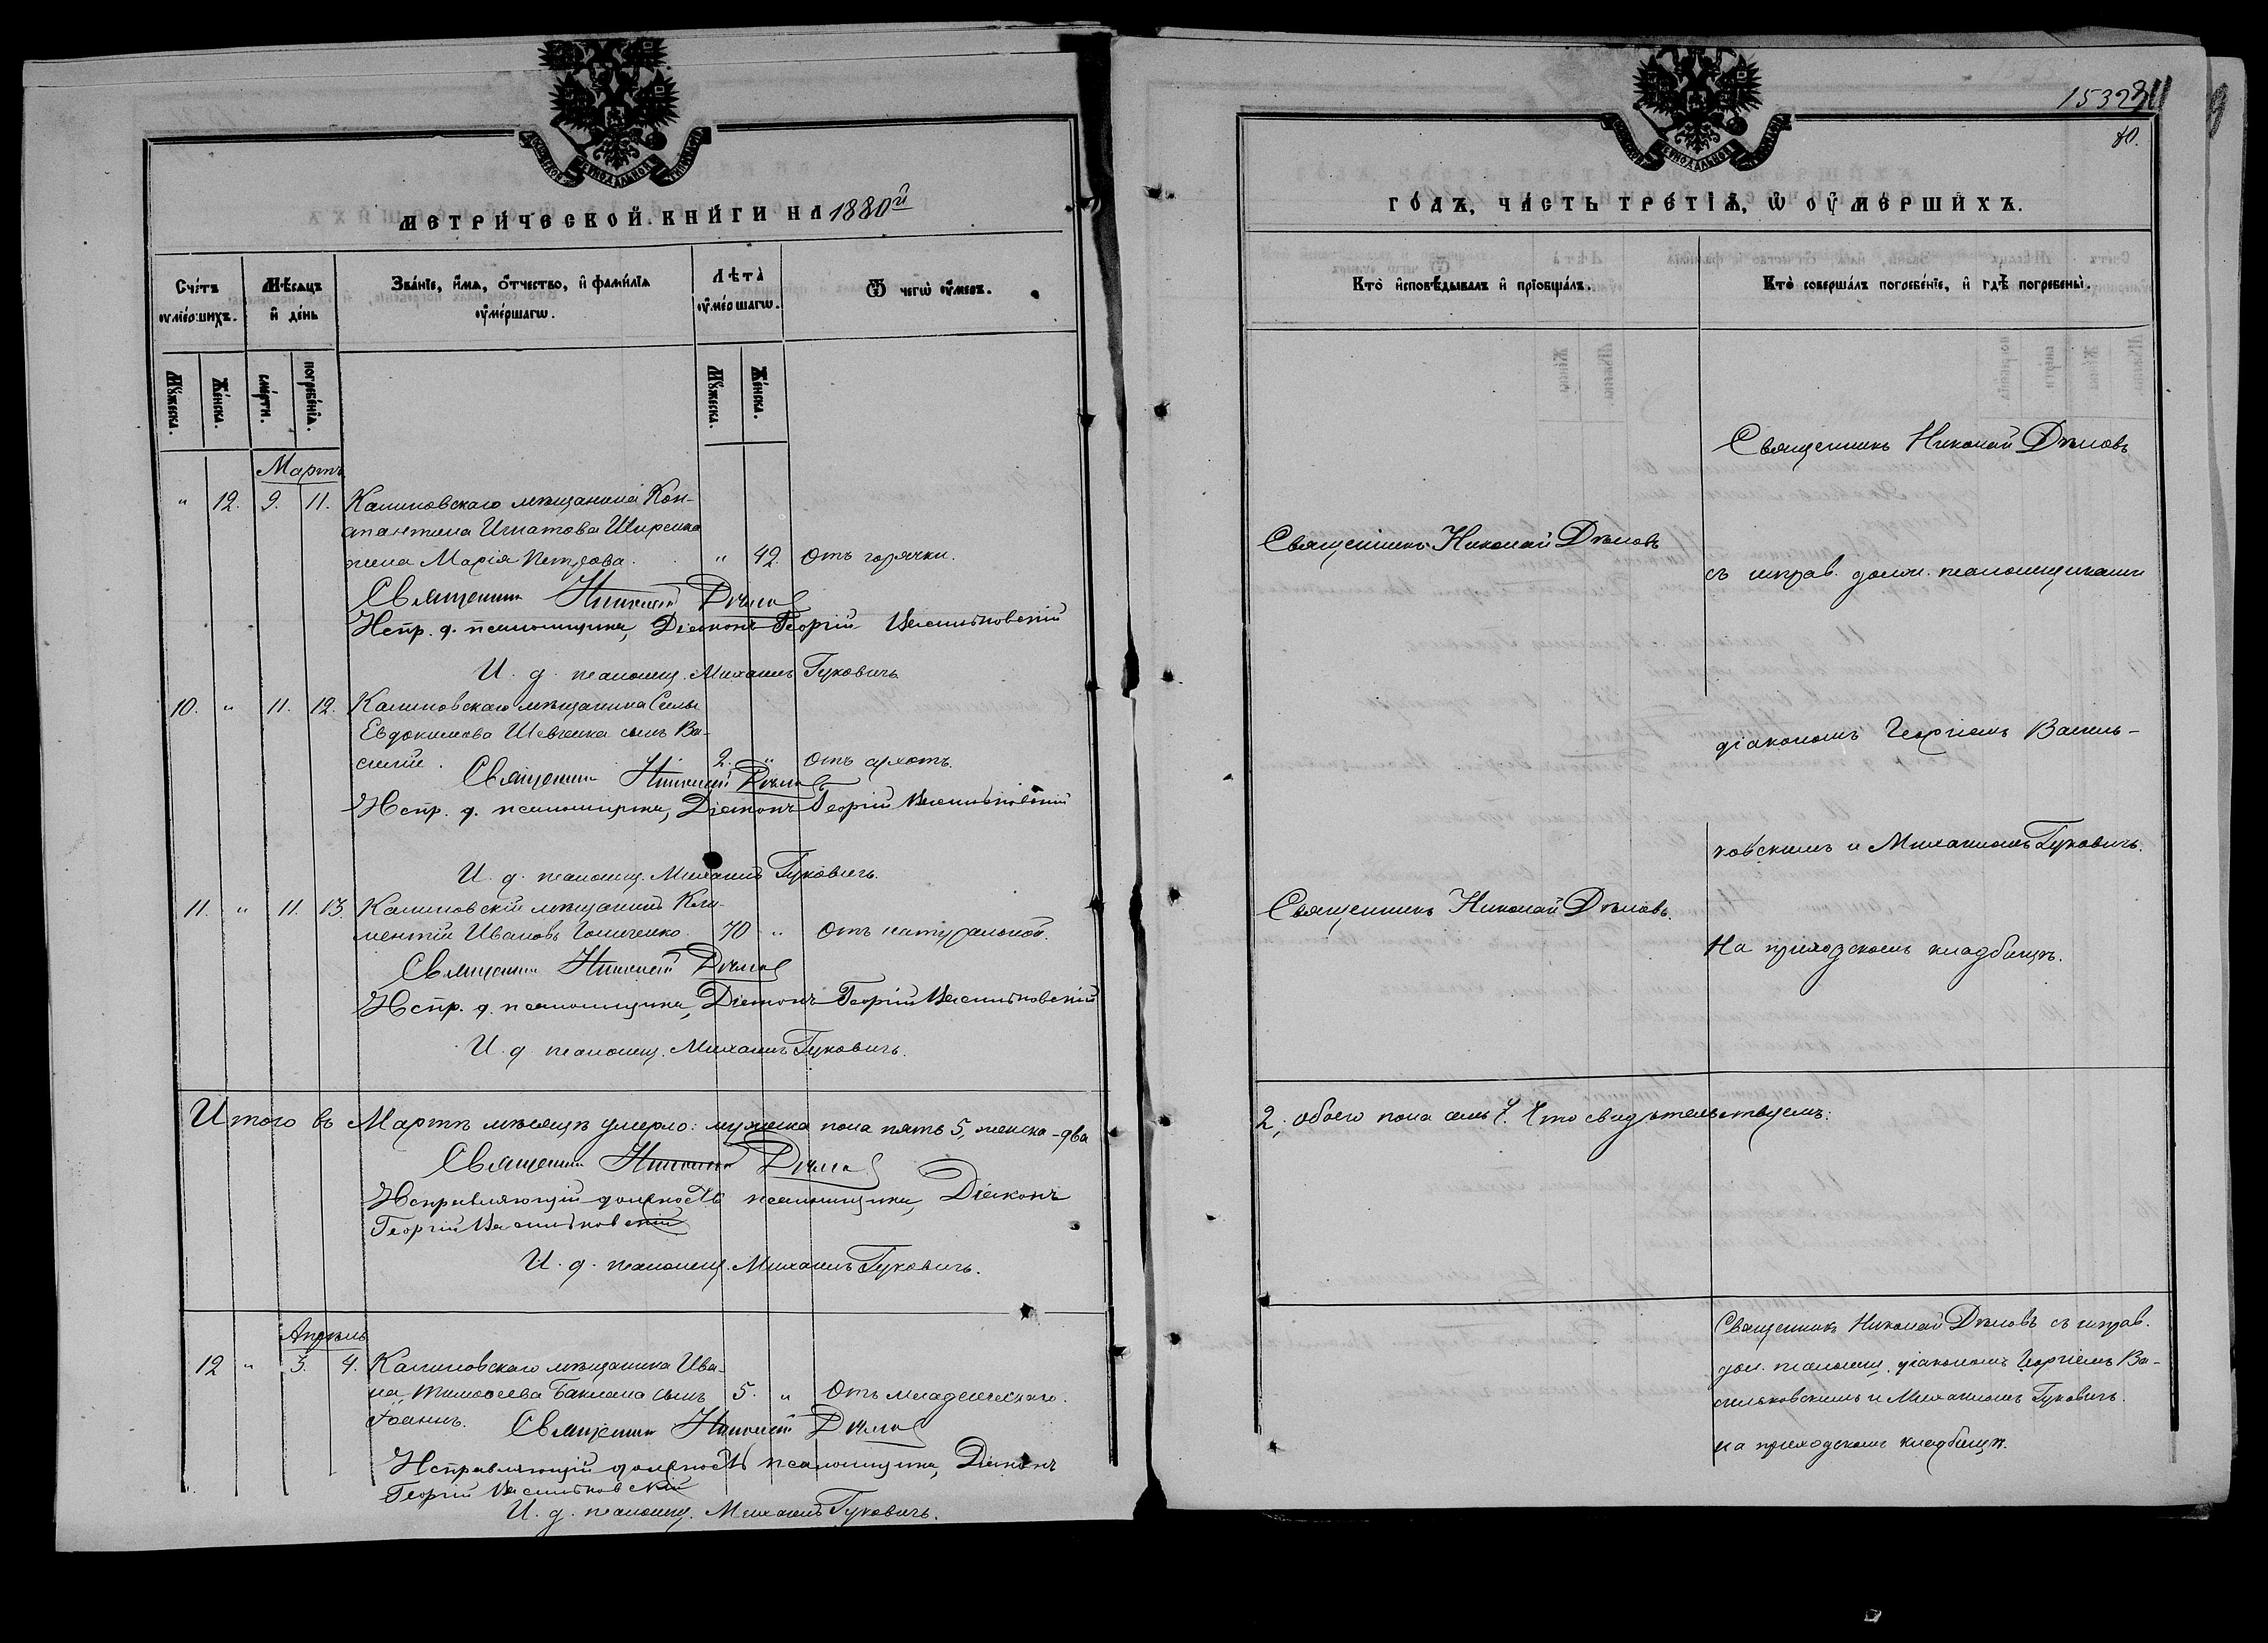 МЕТРИЧЕСКОЙ КНИГИ НА 1880й
Счетъ умершихъ.
Мѣсяцъ и день
Званіе, имя, отчество, и фамилія умершаго.
Лѣта умершаго.
Отъ чего умеръ.
Мужеска.
Женска.
смерти.
погребенія.
Мужеска.
Женска.
Мартъ
" 12. 9. 11. Калиновскаго мѣщанина Кон-
стантина Игнатова
жена Марія Петрова. " 42. Отъ горячки.
Священникъ Николай Дѣмовъ
Испр. д. псаломщика, Діаконъ Георгій Васильковскій
И. д. псаломщ. Михаилъ Гуковичъ.
10. " 11. 12. Калиновскаго мѣщанина Силы
Евдокимова Шевченка сынъ Ва-
силій. 2. " Отъ
Священникъ Николай Дѣмовъ
Испр. д. псаломщика, Діаконъ Георгій Васильковскій
И. д. псаломщ. Михаилъ Гуковичъ.
11. " 11. 13. Калиновскій мѣщанинъ Кли-
ментій Ивановъ 70 " Отъ натуральной.
Священникъ Николай Дѣмовъ
Испр. д. псаломщика, Діаконъ Георгій Васильковскій
И. д. псаломщ. Михаилъ Гуковичъ.
Итого въ Мартѣ мѣсяцѣ умерло: мужеска пола пять 5, женска - два
Священникъ Николай Дѣмовъ
Исправляющій должность псаломщика, Діаконъ
Георгій Васильковскій
И. д. псаломщ. Михаилъ Гуковичъ.
Апрѣль
12 " 3. 4. Калиновскаго мѣщанина Ива-
на Тимоѳеева Баклана сынъ 5. " Отъ младенческаго.
Іоаннъ.
Священникъ Николай Дѣмовъ
Исправляющій должность псаломщика, Діаконъ
Георгій Васильковскій
И. д. псаломщ. Михаилъ Гуковичъ.
40.
ГОДЪ, ЧАСТЬ ТРЕТІЯ, Ѿ ОУМЕРШИХЪ.
Кто исповѣдывалъ и пріобщалъ.
Кто совершалъ погребеніе, и гдѣ погребены.
Священникъ Николай Дѣмовъ
Священникъ Николай Дѣмовъ
съ исправ. должн. псаломщиками
діакономъ Георгіемъ Василь-
ковскимъ и Михаиломъ Гуковичъ.
Священникъ Николай Дѣмовъ.
На приходскомъ кладбищѣ.
2; обоего пола семь 7. Что свидѣтельствуемъ:
Священникъ Николай Дѣмовъ съ исправ.
дол. псаломщ. діакономъ Георгіемъ Ва-
сильковскимъ и Михаиломъ Гуковичъ.
на приходскомъ кладбищѣ.